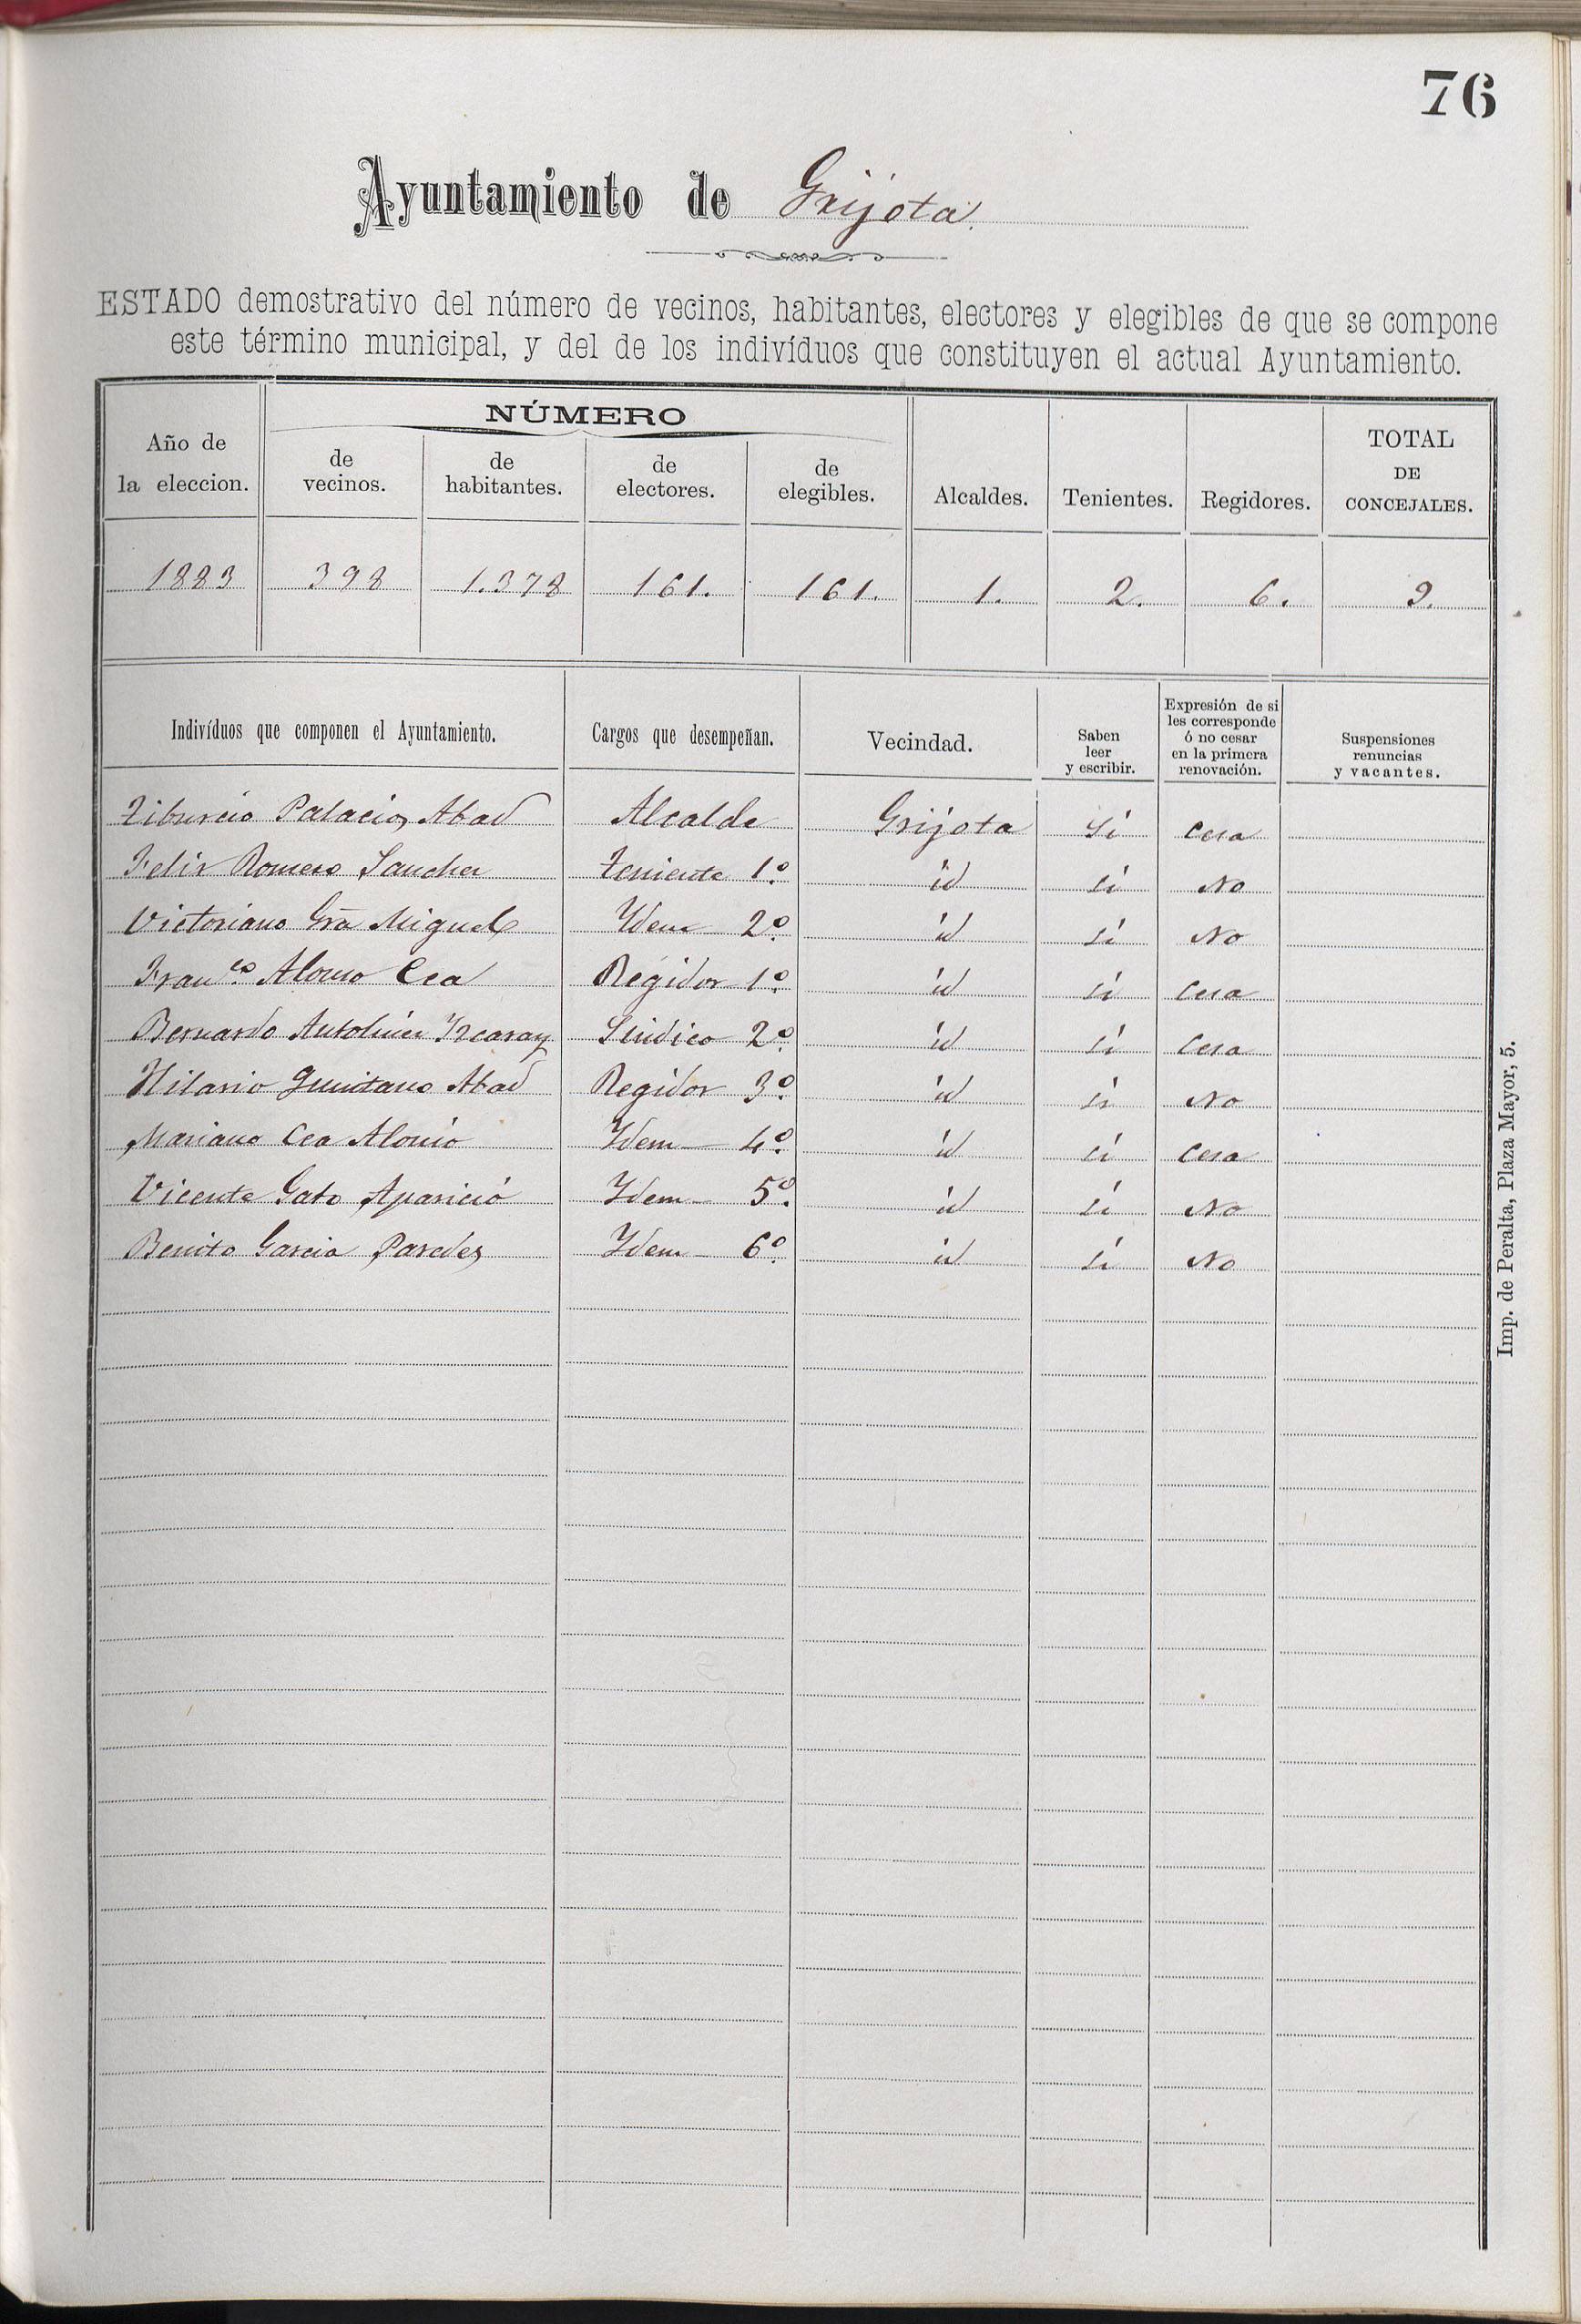 76
Ayuntamiento de Grijota.
ESTADO demostrativo del número de vecinos, habitantes, electores y elegibles de que se compone
este término municipal, y del de los indivíduos que constituyen el actual Ayuntamiento.
Año de la eleccion. NÚMERO de vecinos. de habitantes. de electores. de elegibles. Alcaldes. Tenientes. Regidores. TOTAL DE CONCEJALES.
1883 398 1.378 161. 161. 1. 2. 6. 9.
Indivíduos que componen el Ayuntamiento. Cargos que desempeñan. Vecindad. Saben leer y escribir. Expresión de si les corresponde ó no cesar en la primera renovación. Suspensiones renuncias y vacantes.
Tiburcio Palacios Abad Alcalde Grijota Sí Cesa
Felix Romero Sanchez Teniente 1.º id sí No
Victoriano Gra Miguel Ydem 2.º id sí No
Franco. Alonso Cea Regidor 1.º id sí Cesa
Bernardo Antolinez Yzcaray Síndico 2.º id sí Cesa
Hilario Quintano Abad Regidor 3.º id sí No
Mariano Cea Alonso Ydem 4.º id sí Cesa
Vicente Gato Aparició Ydem 5.º id sí No
Benito Garcia Paredes Ydem 6.º id sí No
Imp. de Peralta, Plaza Mayor, 5.